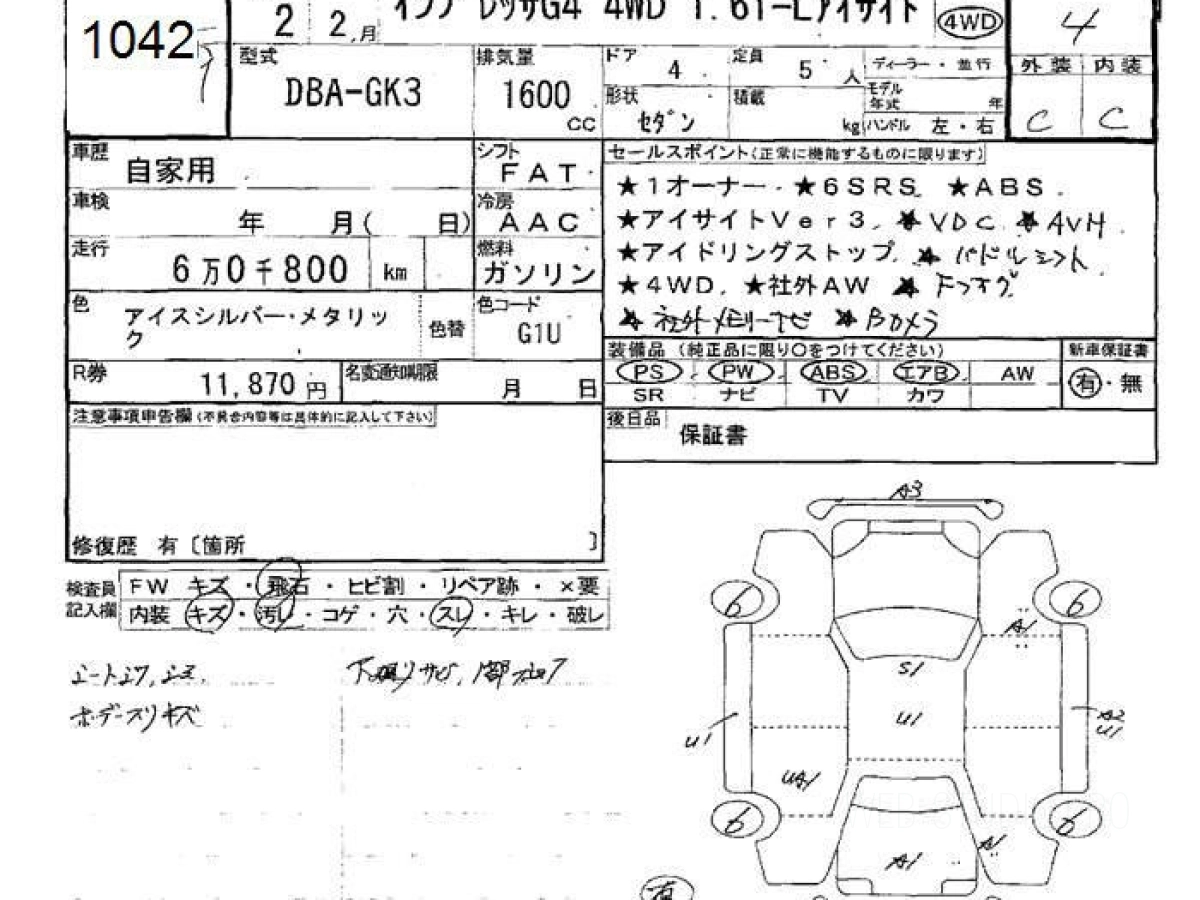 1042
2 2 月 G4 4WD 1.6i-Lアイサイト 4WD 4
型式 DBA-GK3
排気量 1600 CC
ドア 4 定員 5 人
ディーラー・並行
形状 セダン 積載 kg
モデル年式 年
ハンドル 左・右
外装 内装
C C
車歴 自家用
シフト FAT
車検 年 月( 日)
冷房 AAC
走行 6万0千800 km
燃料 ガソリン
色 アイスシルバー・メタリック
色替
色コード G1U
R券 11,870円
名変通知期限 月 日
セールスポイント(正常に機能するものに限ります)
★1オーナー ★6SRS ★ABS
★アイサイトVer3 ★VDC ★AVH
★アイドリングストップ ★パドルシフト
★4WD ★社外AW ★Fフォグ
★社外メモリーナビ ★Bカメラ
装備品(純正品に限り○をつけてください) 新車保証書
PS PW ABS エアB AW 有・無
SR ナビ TV カワ
後日品 保証書
注意事項申告欄(不具合内容等は具体的に記入して下さい)
修復歴 有〔箇所 〕
検査員記入欄
FW キズ・飛石・ヒビ割・リペア跡・×要
内装 キズ・汚レ・コゲ・穴・スレ・キレ・破レ
シートコゲ,シミ 下廻りサビ,
ボデースリキズ
A3
6 6
A1
S1
U1
U1 A2
U1
UA1
6 6
A1 A1
有